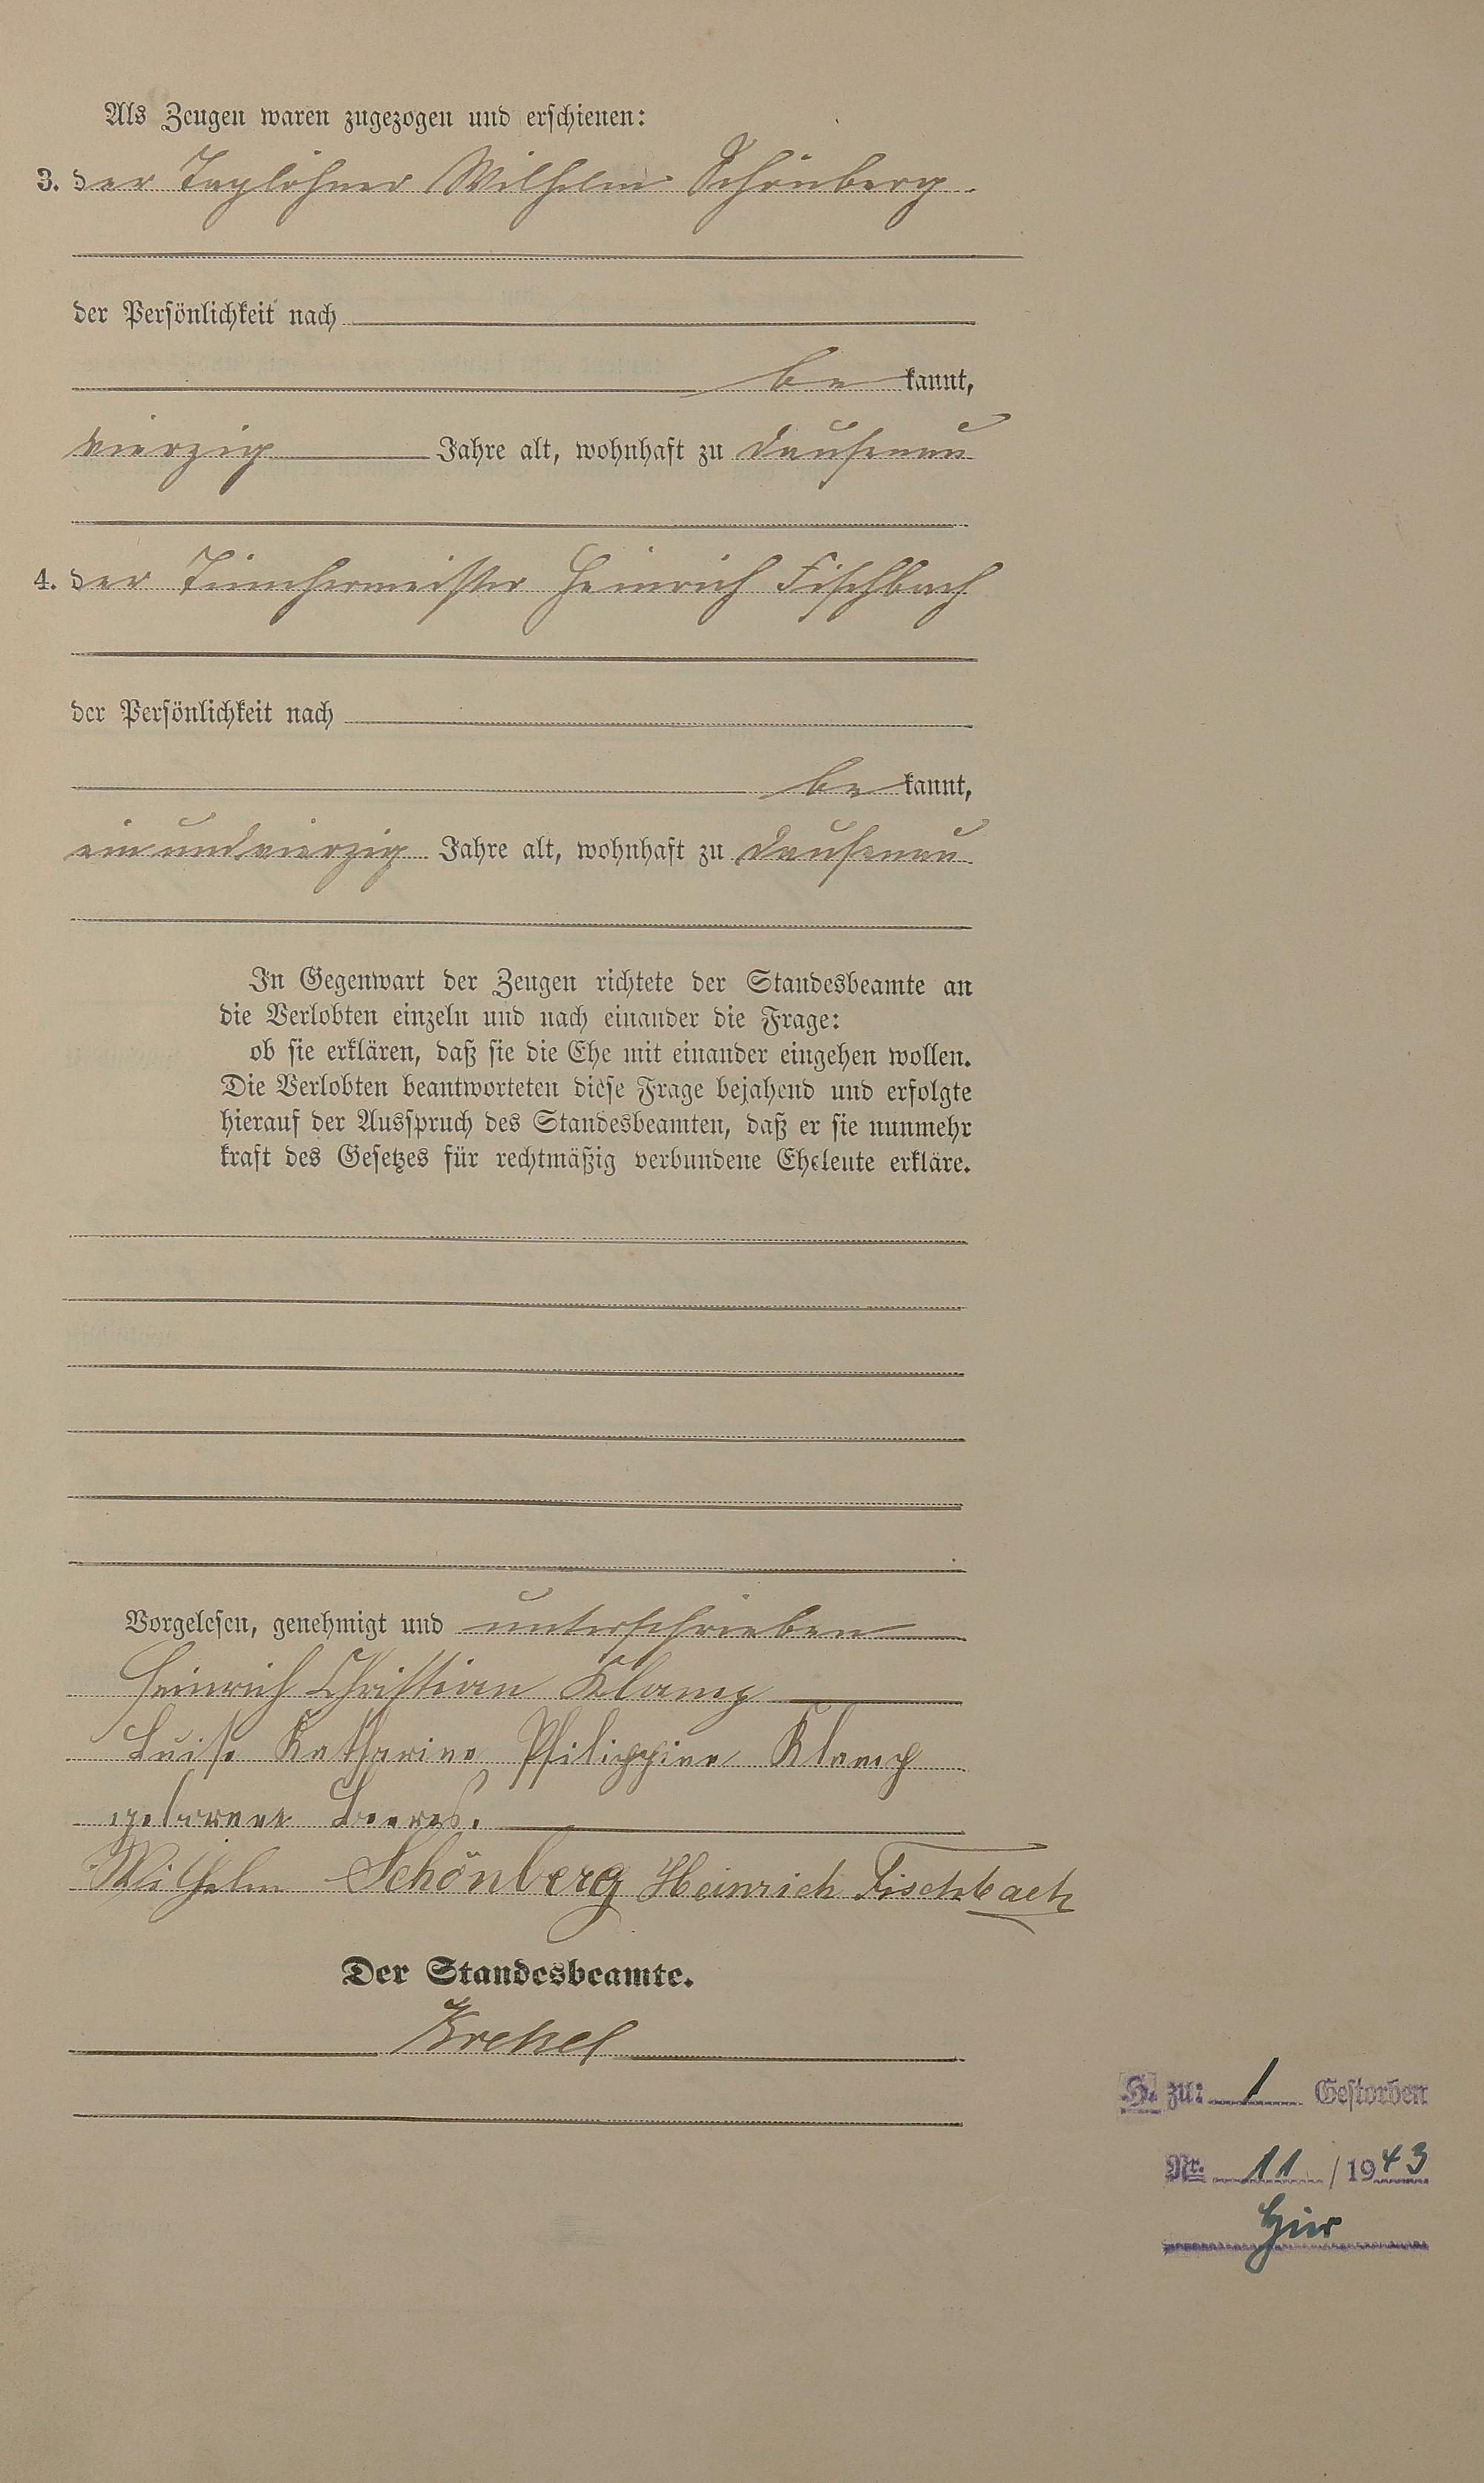 Als Zeugen waren zugezogen und erschienen:
3. der Taglöhner Wilhelm Schönberg
der Persönlichkeit nach
be kannt,
vierzig Jahre alt, wohnhaft zu Dausenau
4. der Tünchermeister Heinrich Fischbach
der Persönlichkeit nach
be kannt,
einundvierzig Jahre alt, wohnhaft zu Dausenau
In Gegenwart der Zeugen richtete der Standesbeamte an
die Verlobten einzeln und nach einander die Frage:
ob sie erklären, daß sie die Ehe mit einander eingehen wollen.
Die Verlobten beantworteten diese Frage bejahend und erfolgte
hierauf der Ausspruch des Standesbeamten, daß er sie nunmehr
kraft des Gesetzes für rechtmäßig verbundene Eheleute erkläre.
Vorgelesen, genehmigt und unterschrieben
Heinrich Christian Klamp
Luise Katharine Philippine Klamp
geborene
Wilhelm Schönberg Heinrich Fischbach
Der Standesbeamte.
Krekel
H. zu: 1 Gestorben
Nr. 11 / 1943